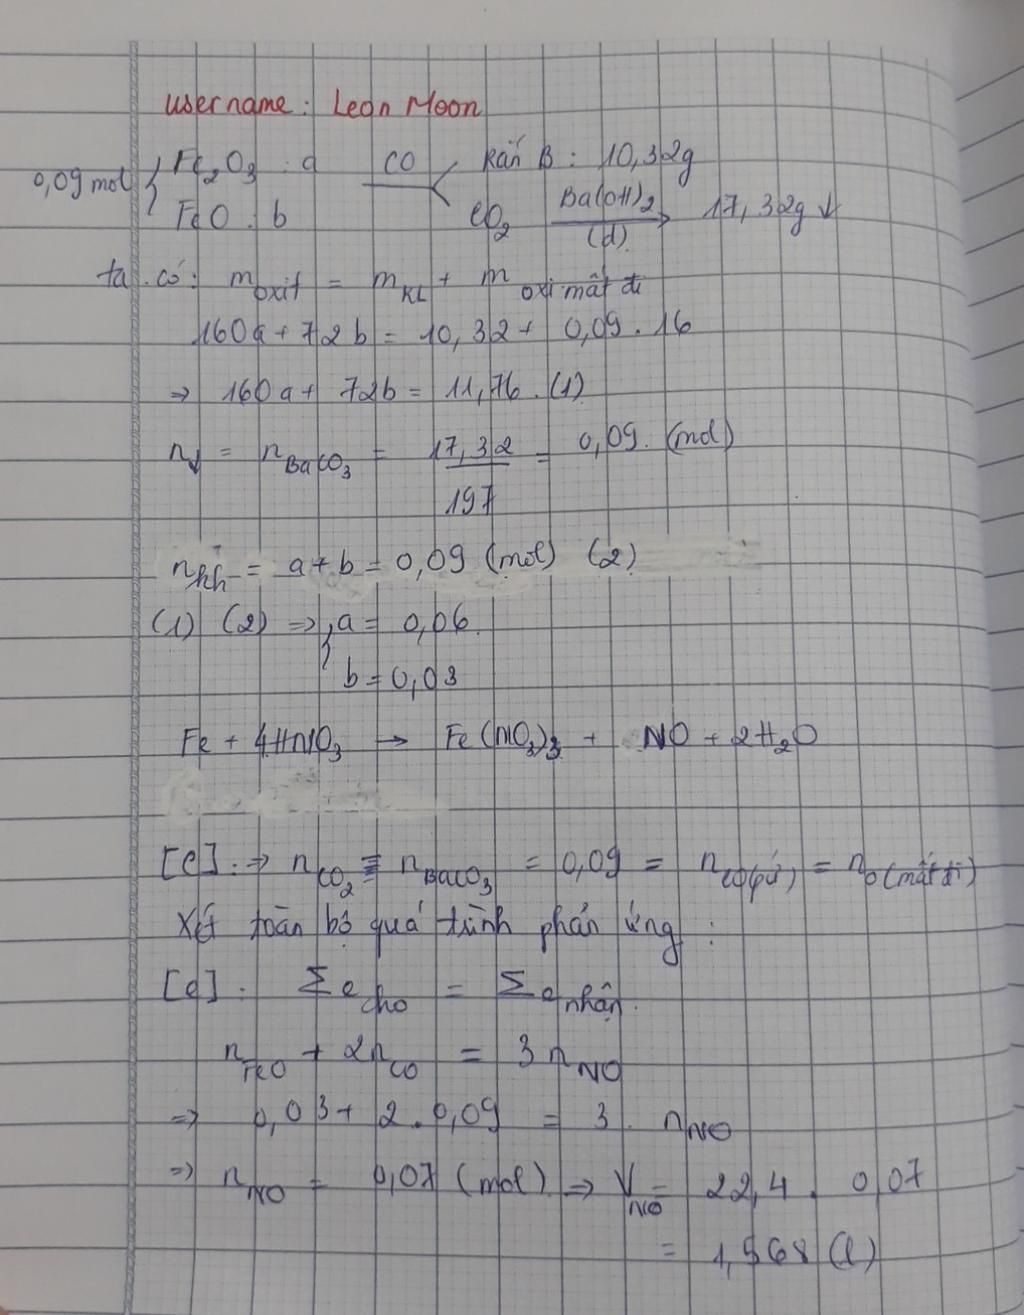 username: Leon Moon
0,09 mol { Fe2O3 : a CO Rắn B : 10,32g
FeO : b CO2 Ba(OH)2 (d) → 17,32g ↓
ta có: m oxit = m KL + m oxi mất đi
160a + 72b = 10,32 + 0,09 . 16
⇒ 160a + 72b = 11,76 (1)
n↓ = n BaCO3 = 17,32 / 197 = 0,09 (mol)
n hh = a + b = 0,09 (mol) (2)
(1) (2) ⇒ { a = 0,06
b = 0,03
Fe + 4HNO3 → Fe(NO3)3 + NO + 2H2O
[C]: ⇒ n CO2 = n BaCO3 = 0,09 = n CO(pứ) = n O(mất đi)
Xét toàn bộ quá trình phản ứng :
[e]: Σe cho = Σe nhận.
n FeO + 2n CO = 3 n NO
⇒ 0,03 + 2 . 0,09 = 3 . n NO
⇒ n NO = 0,07 (mol) ⇒ V NO = 22,4 . 0,07
= 1,568 (l)